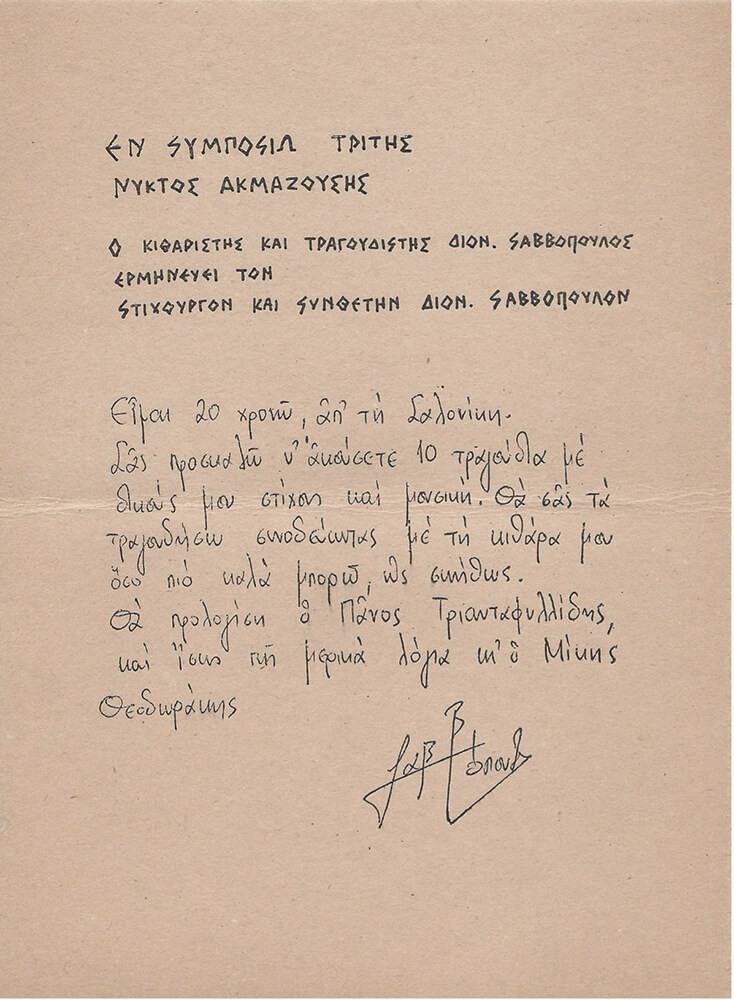 ΕΝ SΥΜΠΟSΙΩ ΤΡΙΤΗΣ
ΝΥΚΤΟΣ ΑΚΜΑΖΟΥΣΗΣ
Ο ΚΙΘΑΡΙΣΤΗΣ ΚΑΙ ΤΡΑΓΟΥΔΙΣΤΗΣ ΔΙΟΝ. SΑΒΒΟΠΟΥΛΟΣ
ΕΡΜΗΝΕΥΕΙ ΤΟΝ
SΤΙΧΟΥΡΓΟΝ ΚΑΙ SΥΝΘΕΤΗΝ ΔΙΟΝ. SΑΒΒΟΠΟΥΛΟΝ
Εἶμαι 20 χρονῶ, ἀπ' τὴ Σαλονίκη.
Σᾶς προσκαλῶ ν' ἀκούσετε 10 τραγούδια μὲ
δικούς μου στίχους καὶ μουσική. Θὰ σᾶς τὰ
τραγουδήσω συνοδεύοντας μὲ τὴ κιθάρα μου
ὅσο πιὸ καλὰ μπορῶ, ὡς συνήθως.
Θὰ προλογίση ὁ Πᾶνος Τριανταφυλλίδης,
καὶ ἴσως πῆ μερικὰ λόγια κι' ὁ Μίκης
Θεοδωράκης
Σαββόπουλ